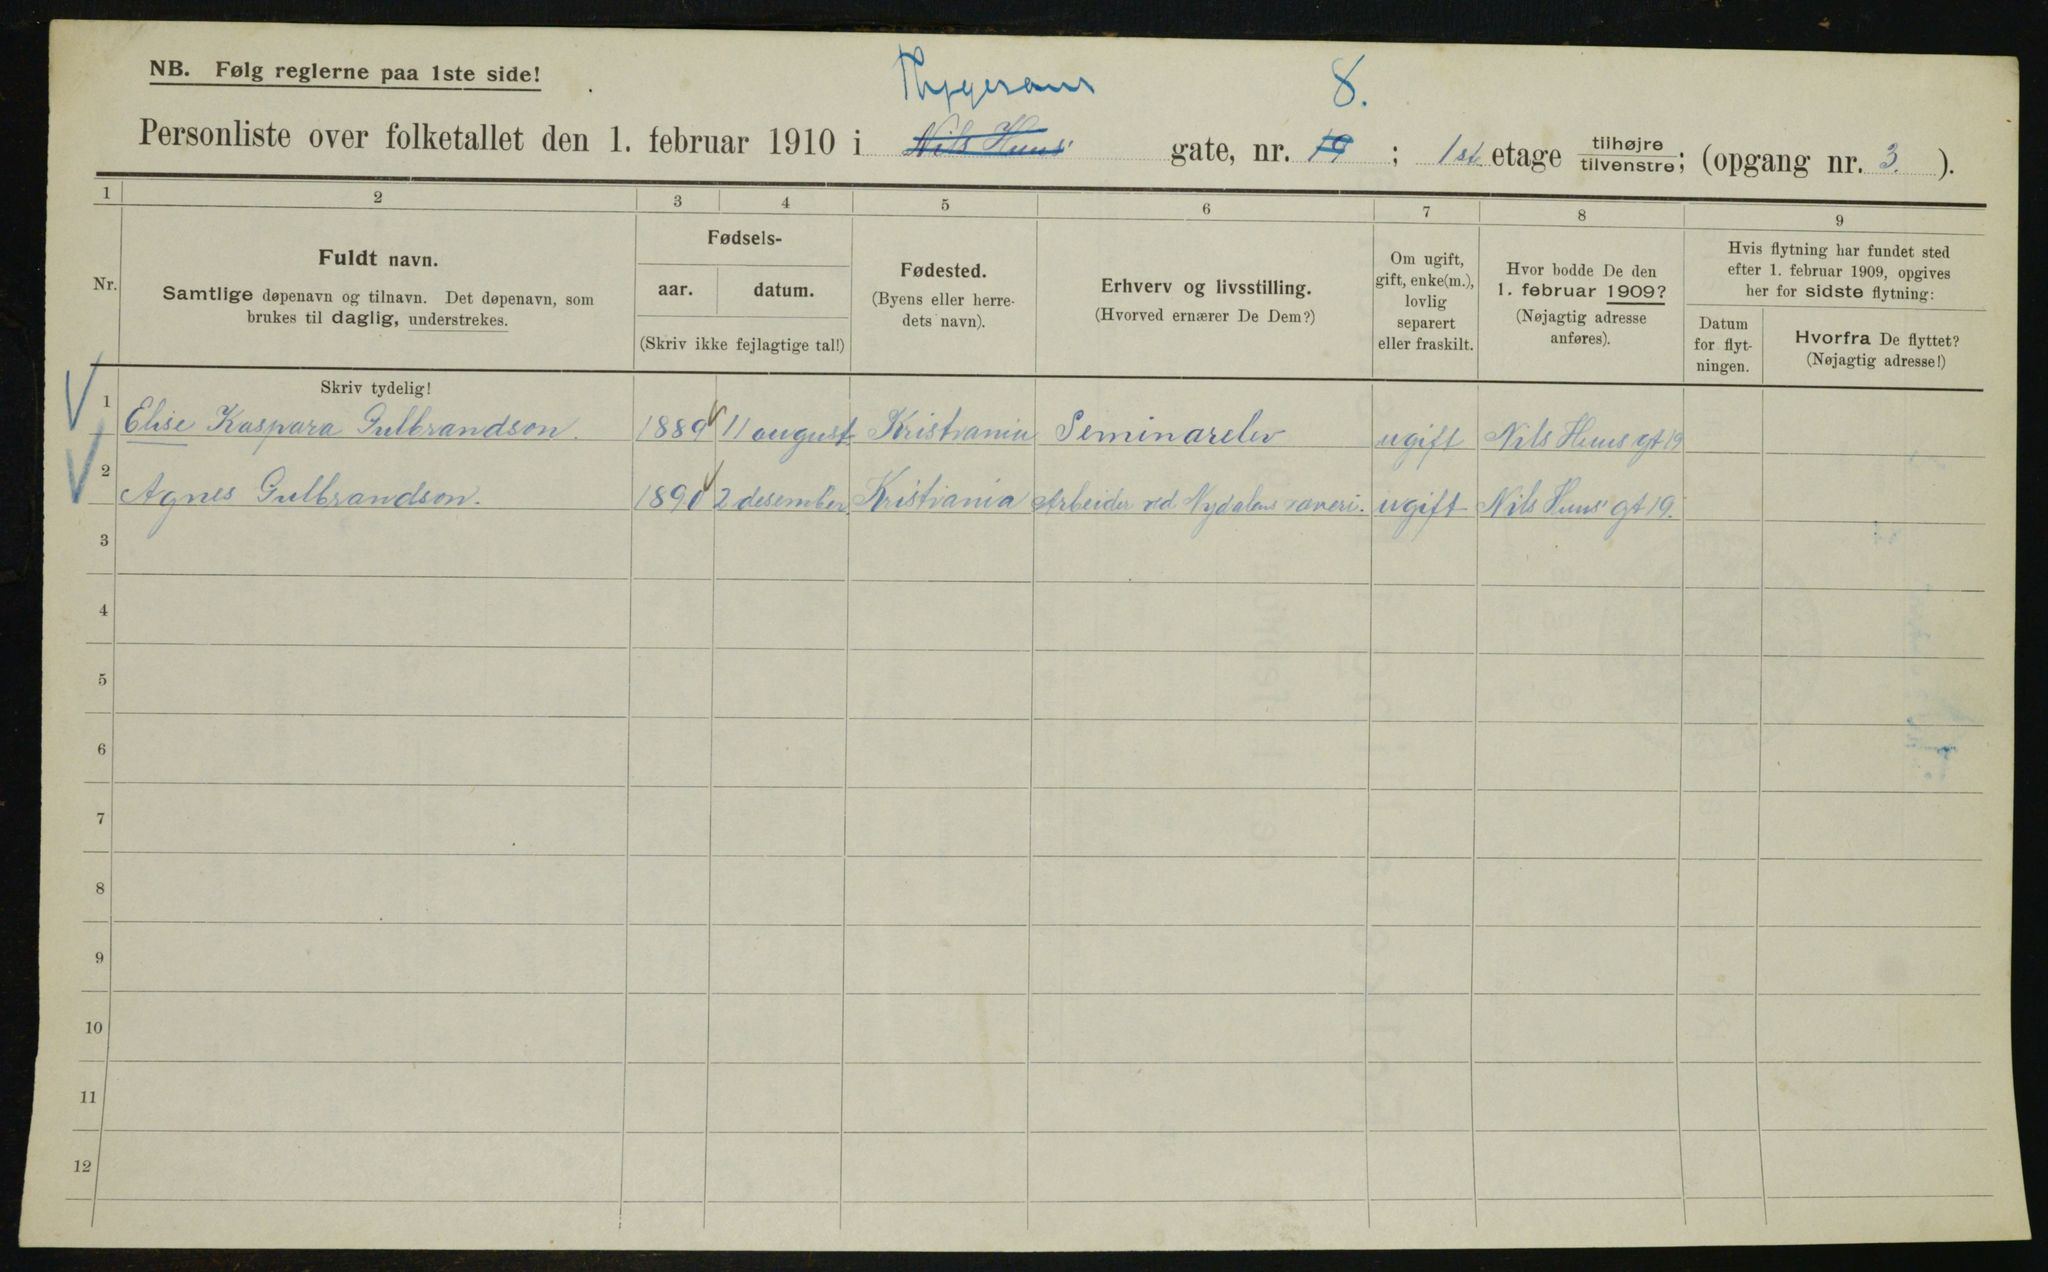 NB. Følg reglerne paa 1ste side!
8.
Personliste over folketallet den 1. februar 1910 i Nils Huus' gate, nr. 19; 1ste etage tilhøjre tilvenstre; (opgang nr. 3.).
1 2 3 4 5 6 7 8 9
Nr.
Fuldt navn.
Samtlige døpenavn og tilnavn. Det døpenavn, som
brukes til daglig, understrekes.
Fødsels-
aar. datum.
(Skriv ikke fejlagtige tal!)
Fødested.
(Byens eller herre-
dets navn).
Erhverv og livsstilling.
(Hvorved ernærer De Dem?)
Om ugift,
gift, enke(m.),
lovlig
separert
eller fraskilt.
Hvor bodde De den
1. februar 1909?
(Nøjagtig adresse
anføres).
Hvis flytning har fundet sted
efter 1. februar 1909, opgives
her for sidste flytning:
Datum
for flyt-
ningen.
Hvorfra De flyttet?
(Nøjagtig adresse!)
Skriv tydelig!
1 Elise Kaspara Gulbrandson. 1889 11 august Kristiania Seminarelev ugift Nils Huus gt 19
2 Agnes Gulbrandson. 1890 2 desember. Kristiania Arbeider ved Nydalens væveri. ugift Nils Huus' gt 19.
3
4
5
6
7
8
9
10
11
12